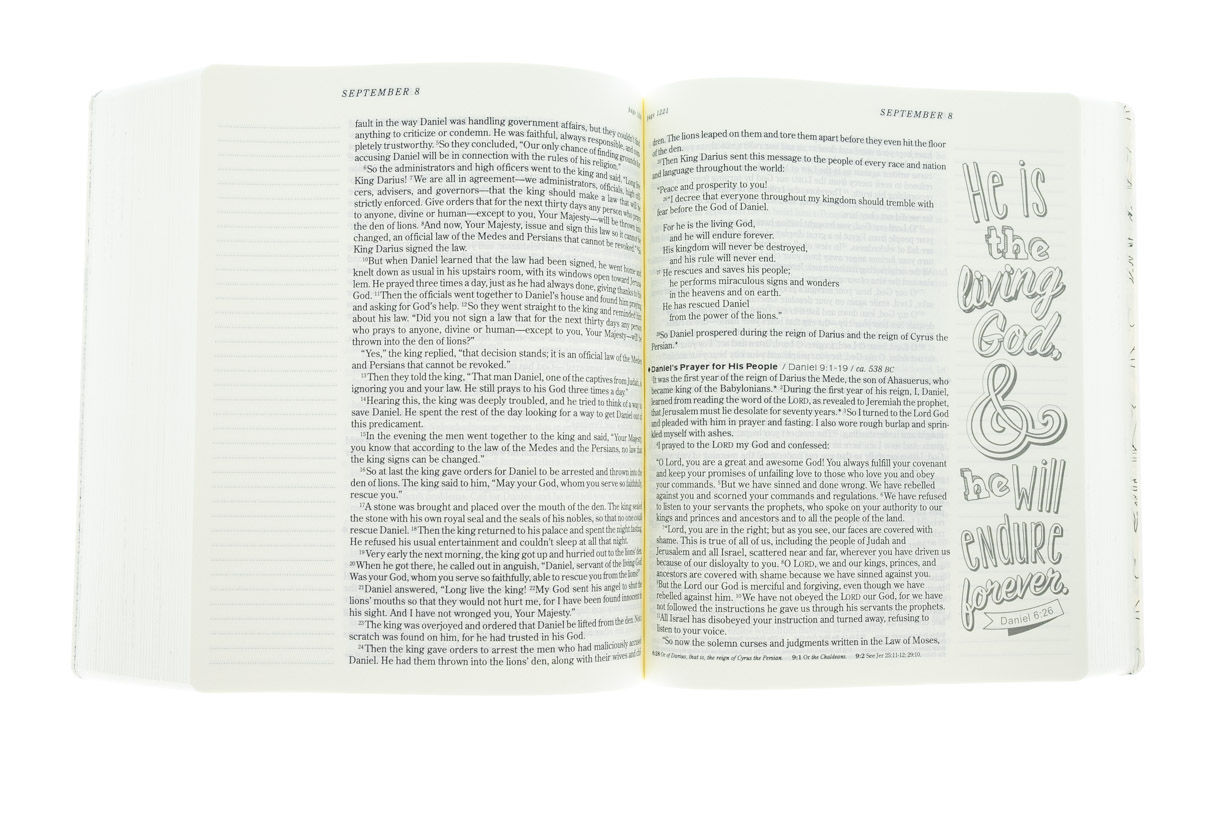 SEPTEMBER 8
fault in the way Daniel was handling government affairs, but they couldn't
anything to criticize or condemn. He was faithful, always responsible, and
pletely trustworthy. ⁵So they concluded, “Our only chance of finding grounds
accusing Daniel will be in connection with the rules of his religion.”
⁶So the administrators and high officers went to the king and said, “Long
King Darius! ⁷We are all in agreement—we administrators, officials, high
cers, advisers, and governors—that the king should make a law that will
strictly enforced. Give orders that for the next thirty days any person who
to anyone, divine or human—except to you, Your Majesty—will be thrown
the den of lions. ⁸And now, Your Majesty, issue and sign this law so it cannot
changed, an official law of the Medes and Persians that cannot be revoked.”
King Darius signed the law.
¹⁰But when Daniel learned that the law had been signed, he went home and
knelt down as usual in his upstairs room, with its windows open toward
lem. He prayed three times a day, just as he had always done, giving thanks to
God. ¹¹Then the officials went together to Daniel's house and found him praying
and asking for God's help. ¹²So they went straight to the king and reminded
about his law. “Did you not sign a law that for the next thirty days any person
who prays to anyone, divine or human—except to you, Your Majesty—will
thrown into the den of lions?”
“Yes,” the king replied, “that decision stands; it is an official law of the Medes
and Persians that cannot be revoked.”
¹³Then they told the king, “That man Daniel, one of the captives from Judah,
ignoring you and your law. He still prays to his God three times a day.”
¹⁴Hearing this, the king was deeply troubled, and he tried to think of a way
save Daniel. He spent the rest of the day looking for a way to get Daniel out of
this predicament.
¹⁵In the evening the men went together to the king and said, “Your Majesty,
you know that according to the law of the Medes and the Persians, no law that
the king signs can be changed.”
¹⁶So at last the king gave orders for Daniel to be arrested and thrown into the
den of lions. The king said to him, “May your God, whom you serve so faithfully,
rescue you.”
¹⁷A stone was brought and placed over the mouth of the den. The king sealed
the stone with his own royal seal and the seals of his nobles, so that no one could
rescue Daniel. ¹⁸Then the king returned to his palace and spent the night fasting.
He refused his usual entertainment and couldn't sleep at all that night.
¹⁹Very early the next morning, the king got up and hurried out to the lions' den.
²⁰When he got there, he called out in anguish, “Daniel, servant of the living God!
Was your God, whom you serve so faithfully, able to rescue you from the lions?”
²¹Daniel answered, “Long live the king! ²²My God sent his angel to shut the
lions' mouths so that they would not hurt me, for I have been found innocent in
his sight. And I have not wronged you, Your Majesty.”
²³The king was overjoyed and ordered that Daniel be lifted from the den. Not a
scratch was found on him, for he had trusted in his God.
²⁴Then the king gave orders to arrest the men who had maliciously accused
Daniel. He had them thrown into the lions' den, along with their wives and
page 1221
SEPTEMBER 8
dren. The lions leaped on them and tore them apart before they even hit the floor
of the den.
²⁵Then King Darius sent this message to the people of every race and nation
and language throughout the world:
“Peace and prosperity to you!
²⁶“I decree that everyone throughout my kingdom should tremble with
fear before the God of Daniel.
For he is the living God,
and he will endure forever.
His kingdom will never be destroyed,
and his rule will never end.
²⁷He rescues and saves his people;
he performs miraculous signs and wonders
in the heavens and on earth.
He has rescued Daniel
from the power of the lions.”
²⁸So Daniel prospered during the reign of Darius and the reign of Cyrus the
Persian.*
Daniel's Prayer for His People / Daniel 9:1-19 / ca. 538 BC
¹It was the first year of the reign of Darius the Mede, the son of Ahasuerus, who
became king of the Babylonians.* ²During the first year of his reign, I, Daniel,
learned from reading the word of the LORD, as revealed to Jeremiah the prophet,
that Jerusalem must lie desolate for seventy years.* ³So I turned to the Lord God
and pleaded with him in prayer and fasting. I also wore rough burlap and sprin-
kled myself with ashes.
⁴I prayed to the LORD my God and confessed:
“O Lord, you are a great and awesome God! You always fulfill your covenant
and keep your promises of unfailing love to those who love you and obey
your commands. ⁵But we have sinned and done wrong. We have rebelled
against you and scorned your commands and regulations. ⁶We have refused
to listen to your servants the prophets, who spoke on your authority to our
kings and princes and ancestors and to all the people of the land.
⁷“Lord, you are in the right; but as you see, our faces are covered with
shame. This is true of all of us, including the people of Judah and
Jerusalem and all Israel, scattered near and far, wherever you have driven us
because of our disloyalty to you. ⁸O LORD, we and our kings, princes, and
ancestors are covered with shame because we have sinned against you.
⁹But the Lord our God is merciful and forgiving, even though we have
rebelled against him. ¹⁰We have not obeyed the LORD our God, for we have
not followed the instructions he gave us through his servants the prophets.
¹¹All Israel has disobeyed your instruction and turned away, refusing to
listen to your voice.
“So now the solemn curses and judgments written in the Law of Moses,
6:28 Or of Darius, that is, the reign of Cyrus the Persian. 9:1 Or the Chaldeans. 9:2 See Jer 25:11-12; 29:10.
He is
the
living
God,
&
he will
endure
forever.
Daniel 6:26